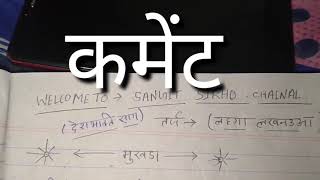 कमेंट
WELCOME TO → SANGIT SIKHO CHAINAL
(देशभक्ति राग) तर्ज → (लहंगा लखनउआ)
← मुखडा →